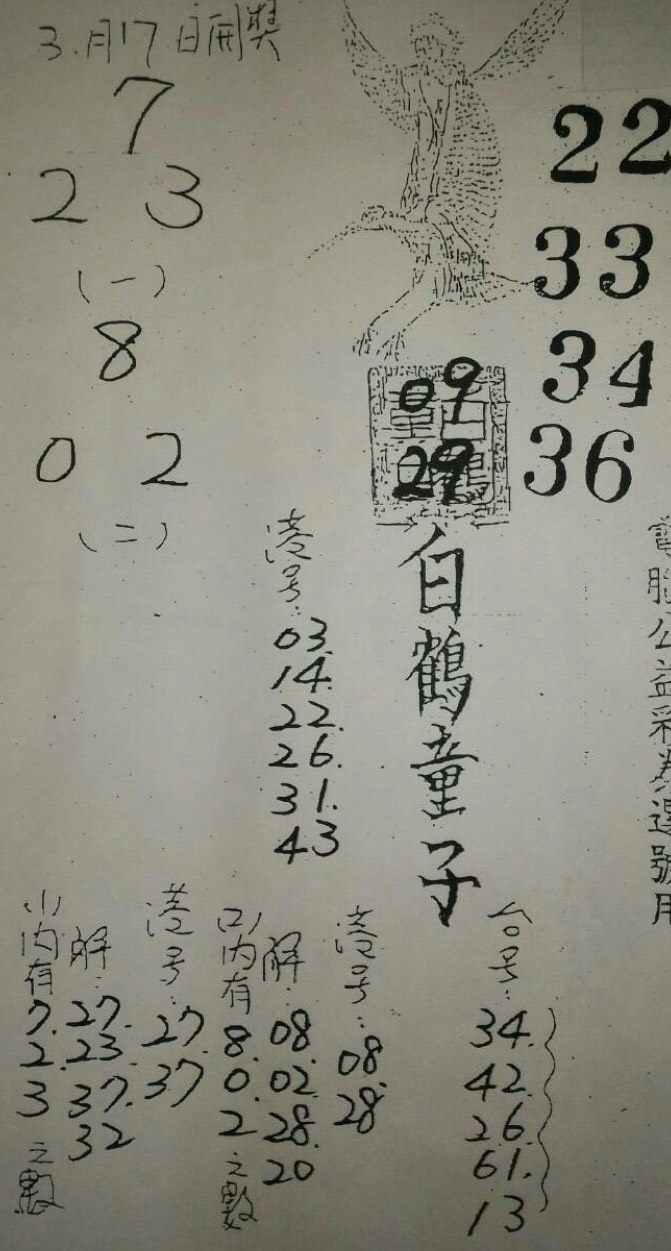 3.月17日開獎
7
2 3
(一)
8
0 2
(二)
22
33
34
36
09
29
白鶴童子
港号:
03.
14.
22.
26.
31.
43
電腦公益彩券選號用
台号:
34.
42.
26.
61.
13
港号:
08.
28
(二)内有
8.
0.
2
之數
解:
08.
02.
28.
20
港号:
27.
37
(一)内有
7.
2.
3
之數
解:
27.
23.
37.
32